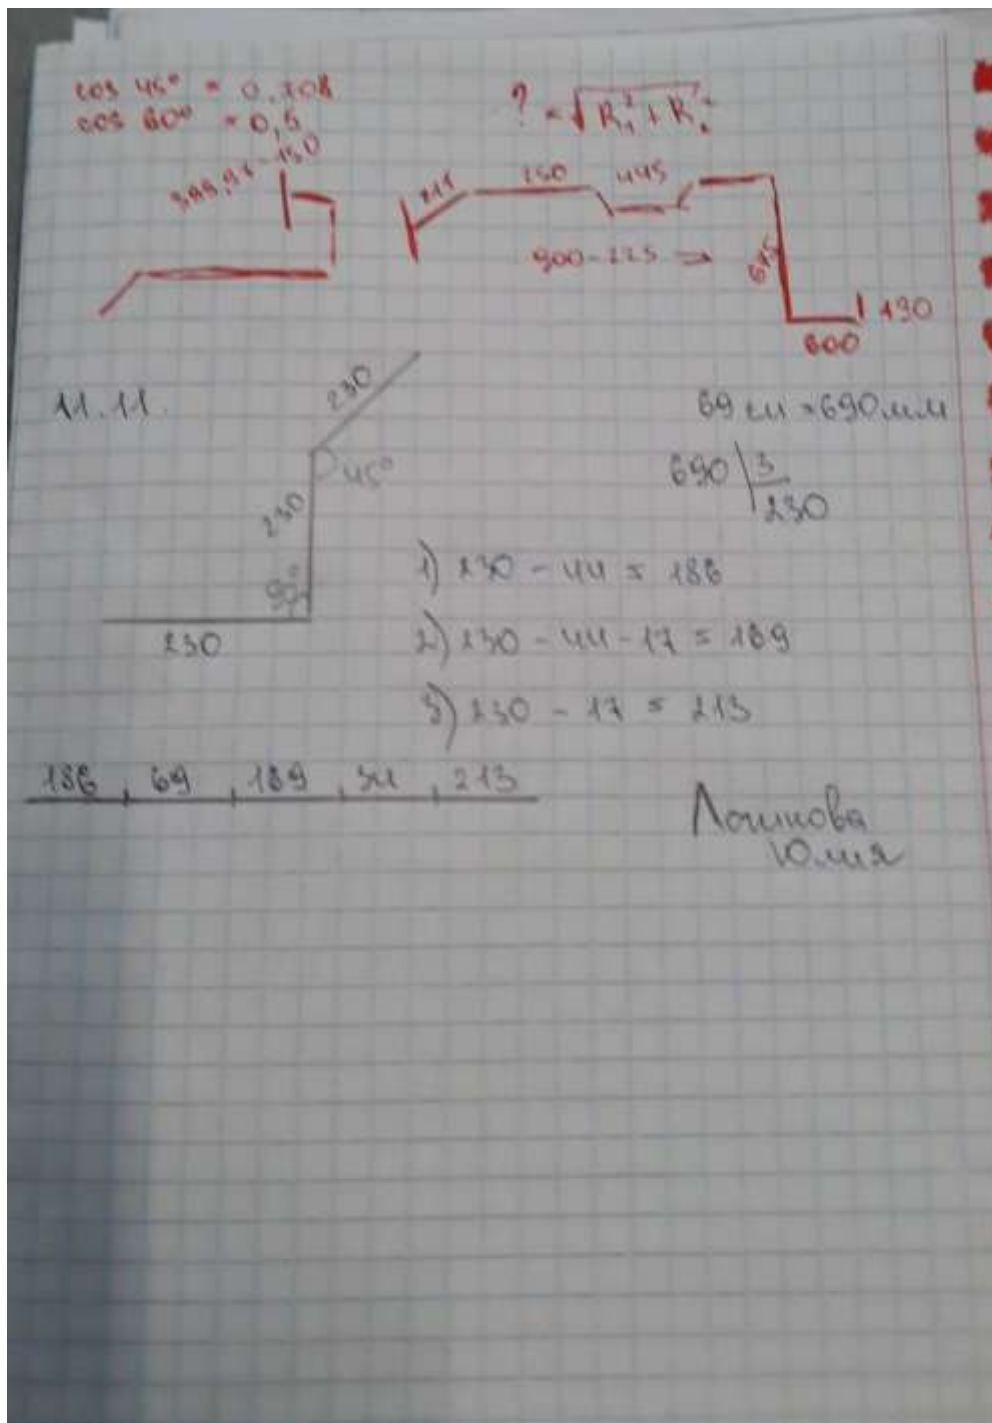 cos 45° = 0,708
cos 60° = 0,5
? = √R₁² + R₂²
150
445
900-225 ⇒
675
130
600
11.11.
230
45°
230
90°
230
69 см = 690 мм
690 | 3
230
1) 230 - 44 = 186
2) 230 - 44 - 17 = 169
3) 230 - 17 = 213
186 69 169 34 213
Юлия